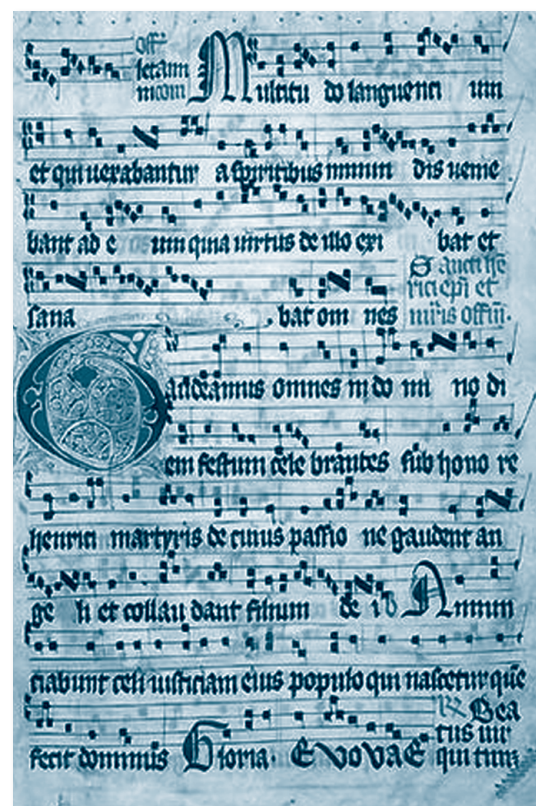 Off
letam
ini
Multitu do languenti um
et qui uexabantur a spiritibus inmun dis uenie
bant ad e um quia uirtus de illo exi bat et
sana bat om nes
Sancti he
rici epi et
mris offm.
Gaudeamus omnes in do mi no di
em festum cele brantes sub hono re
henrici martyris de cuius passio ne gaudent an
ge li et collau dant filium de i Annun
ciabunt celi iusticiam eius populo qui nascetur que
fecit dominus Gloria. EVOVAE
R Bea
tus uir
qui tim